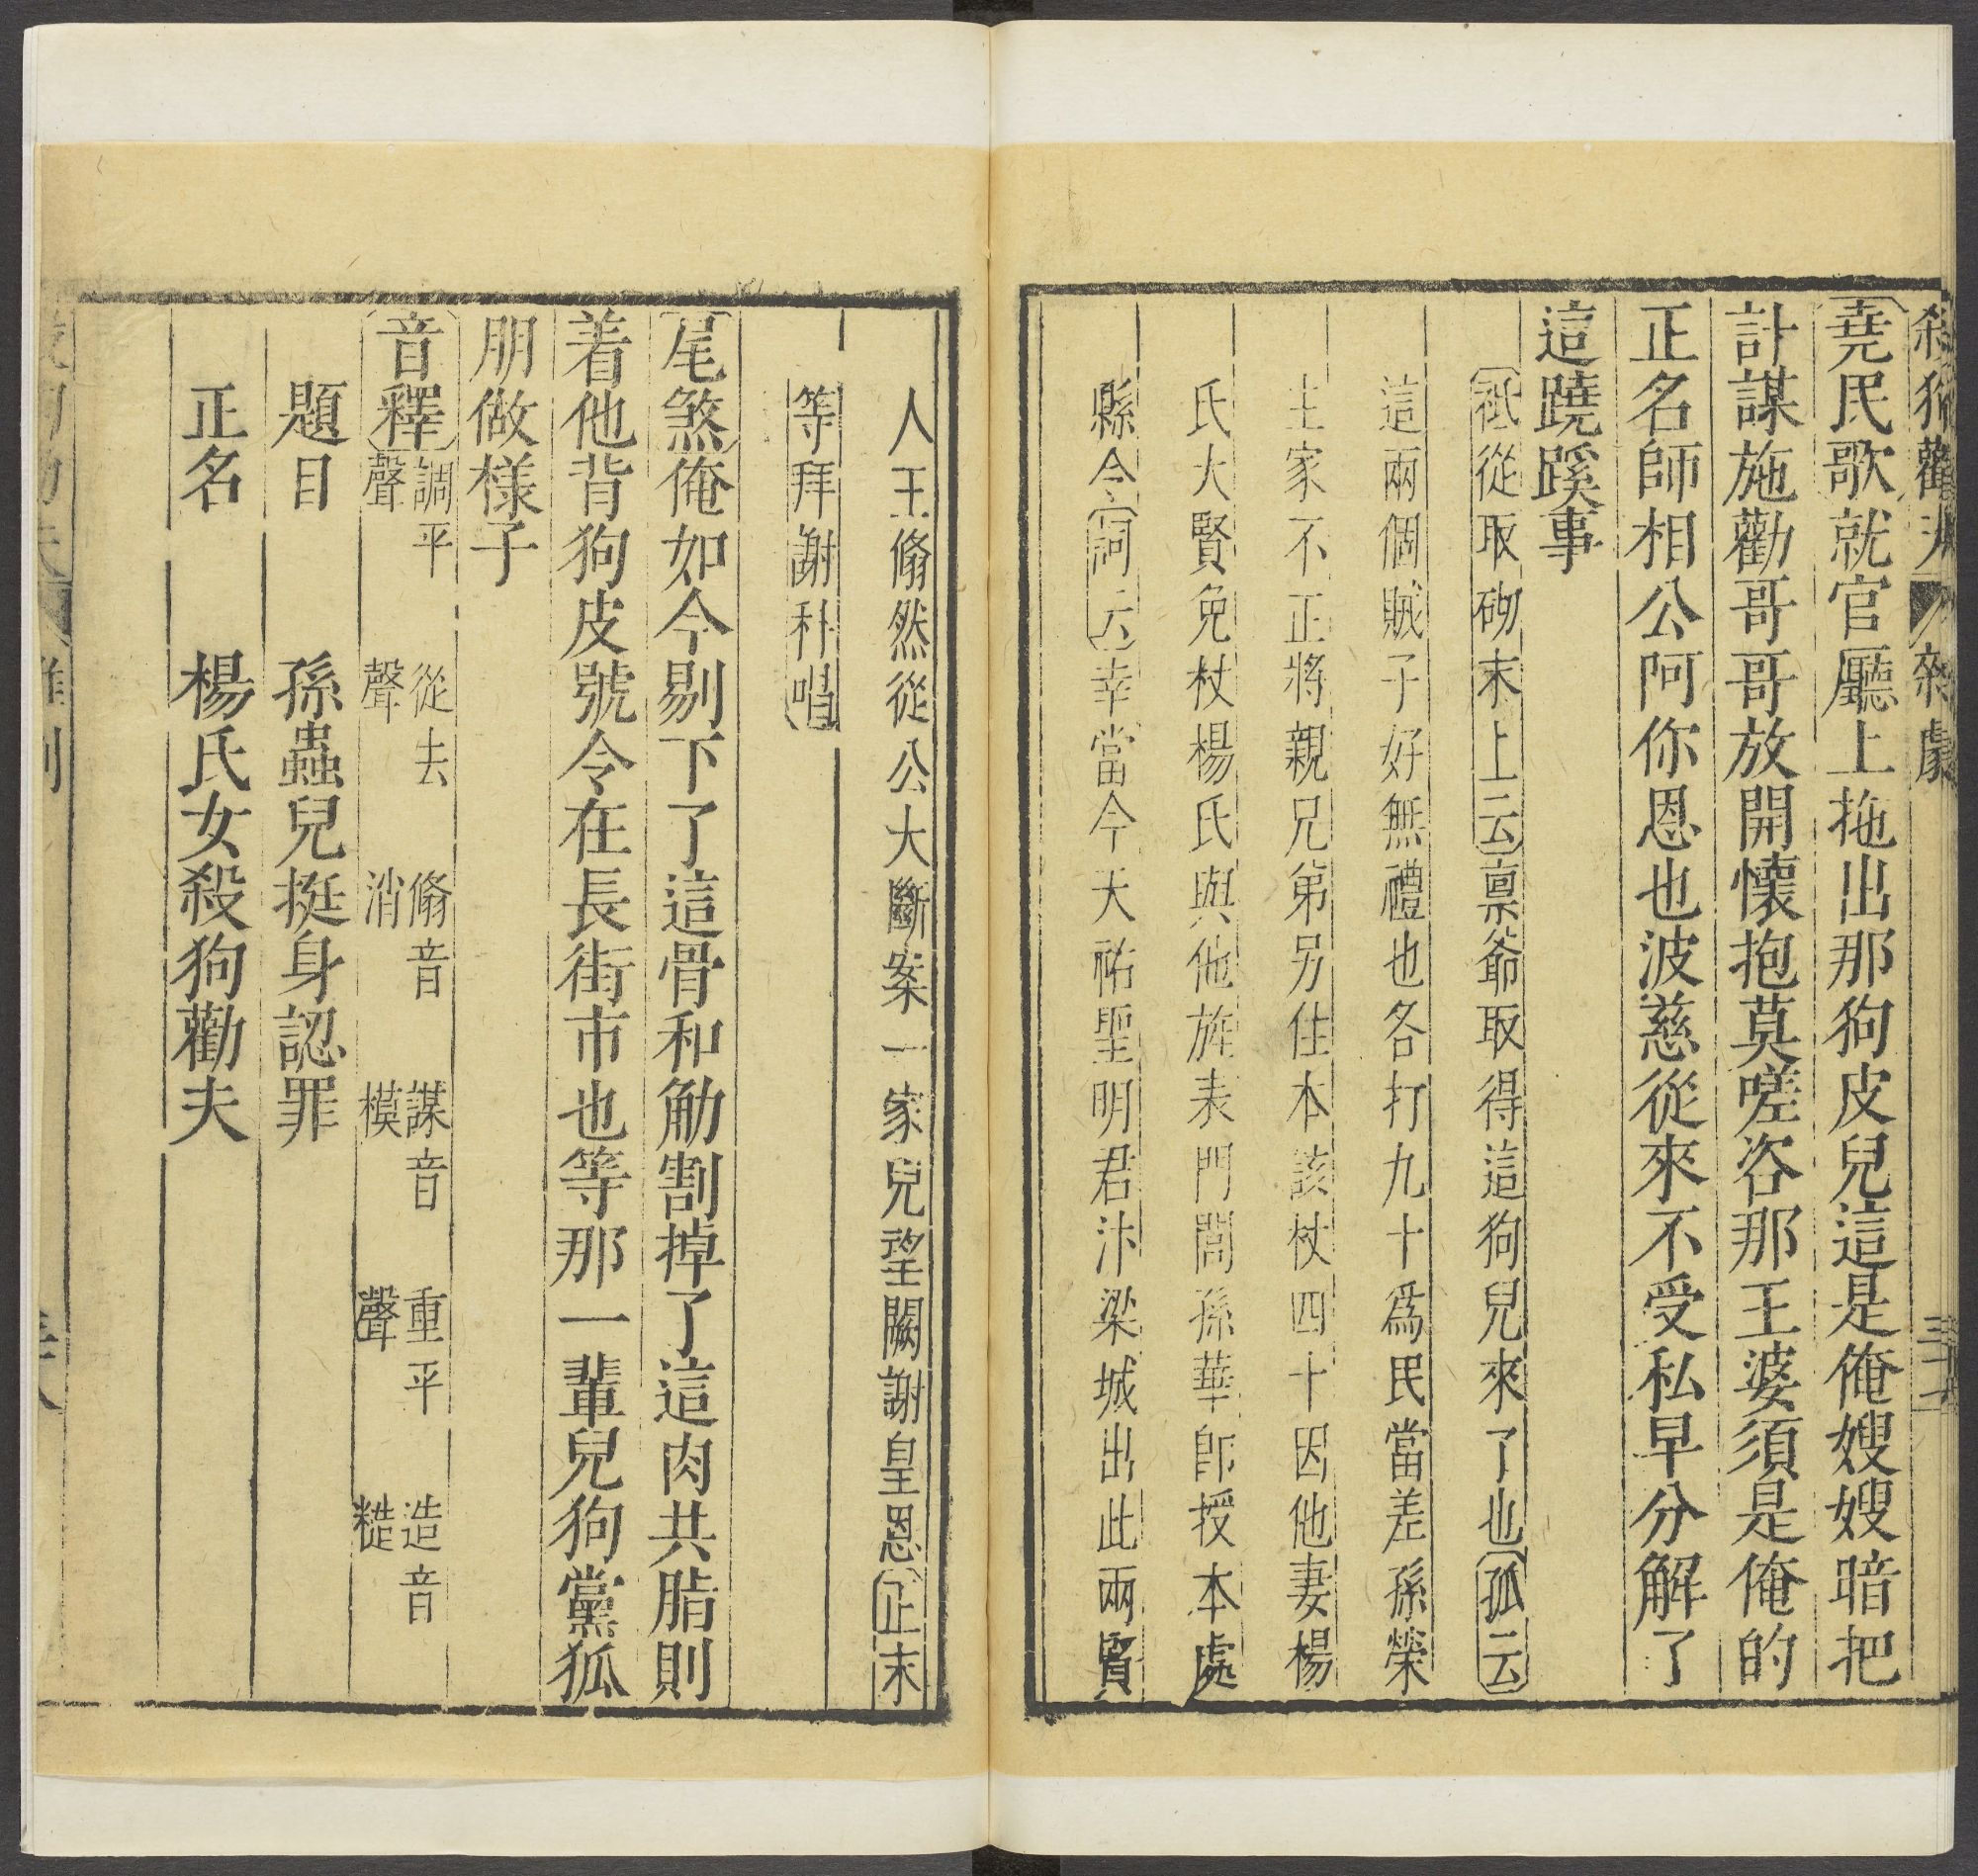 殺狗勸夫 雜劇
堯民歌就官廳上拖出那狗皮兒這是俺嫂嫂暗把
計謀施勸哥哥放開懷抱莫嗟咨那王婆須是俺的
正名師相公阿你恩也波慈從來不受私早分解了
這蹺蹊事
祗從取砌末上云稟爺取得這狗兒來了也孤云
這兩個賊子好無禮也各打九十爲民當差孫榮
主家不正將親兄弟另住本該杖四十因他妻楊
氏大賢免杖楊氏與他旌表門閭孫華卽授本處
縣令詞云幸當今天祐聖明君汴梁城出此兩賢
人王翛然從公大斷案一家兒望闕謝皇恩正末
等拜謝科唱
尾煞俺如今剔下了這骨和觔割掉了這肉共脂則
着他背狗皮號令在長街市也等那一輩兒狗黨狐
朋做樣子
音釋 調平聲 從去聲 翛音消 謀音模 重平聲 造音糙
題目 孫蟲兒挺身認罪
正名 楊氏女殺狗勸夫